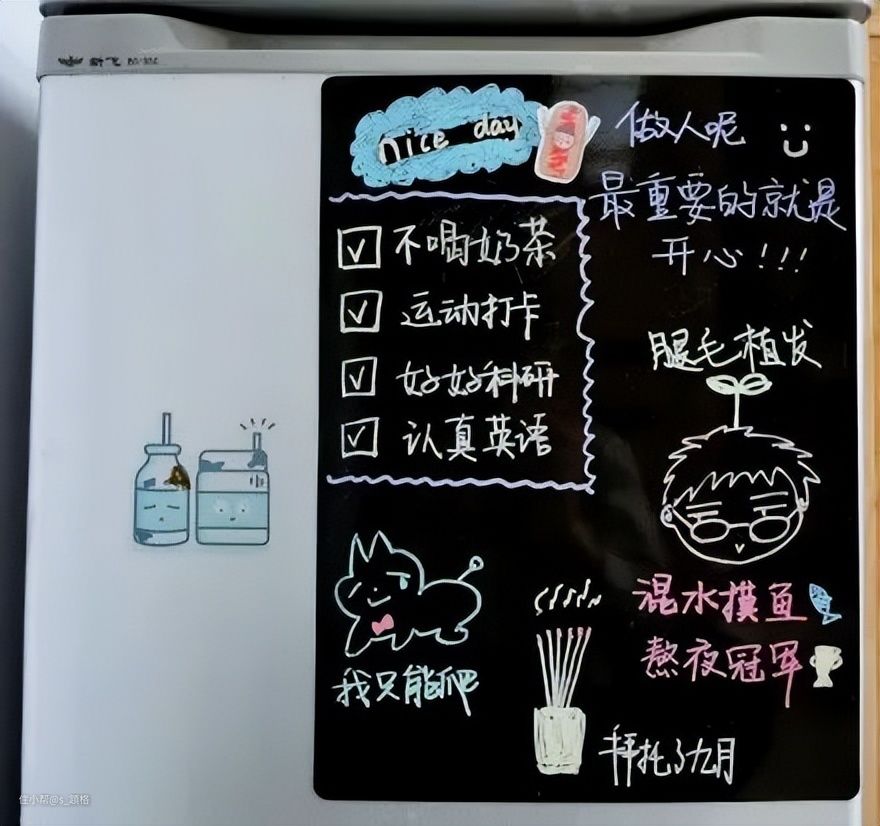 新飞
nice day
做人呢
最重要的就是
开心!!!
不喝奶茶
运动打卡
好好科研
认真英语
腿毛植发
混水摸鱼
熬夜冠军
我只能爬
拜托了九月
住小帮@s_頴格